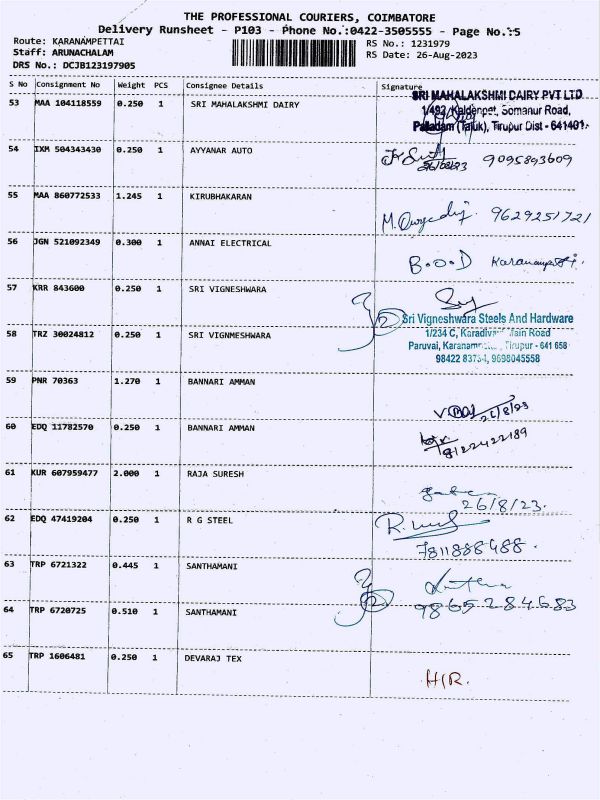 THE PROFESSIONAL COURIERS, COIMBATORE
Delivery Runsheet - P103 - Phone No.:0422-3505555 - Page No.:5
Route: KARANAMPETTAI
RS No.: 1231979
Staff: ARUNACHALAM
RS Date: 26-Aug-2023
DRS No.: DCJB123197905
S No Consignment No Weight PCS Consignee Details Signature
53 MAA 104118559 0.250 1 SRI MAHALAKSHMI DAIRY
SRI MAHALAKSHMI DAIRY PVT LTD
1/492, Kaldenpet, Somanur Road,
Palladam (Taluk), Tirupur Dist - 641401.
54 IXM 504343430 0.250 1 AYYANAR AUTO
26/08/23 9095893609
55 MAA 860772533 1.245 1 KIRUBHAKARAN
9629251721
56 JGN 521092349 0.300 1 ANNAI ELECTRICAL
B.O.O.D
57 KRR 843600 0.250 1 SRI VIGNESHWARA
Sri Vigneshwara Steels And Hardware
58 TRZ 30024812 0.250 1 SRI VIGNMESHWARA
1/234 C, Main Road
Paruvai, Tirupur - 641 658
9698045558
59 PNR 70363 1.270 1 BANNARI AMMAN
26/8/23
60 EDQ 11782570 0.250 1 BANNARI AMMAN
8122422189
61 KUR 607959477 2.000 1 RAJA SURESH
26/8/23.
62 EDQ 47419204 0.250 1 R G STEEL
7811888488.
63 TRP 6721322 0.445 1 SANTHAMANI
64 TRP 6720725 0.510 1 SANTHAMANI
9865284683
65 TRP 1606481 0.250 1 DEVARAJ TEX
H/R.